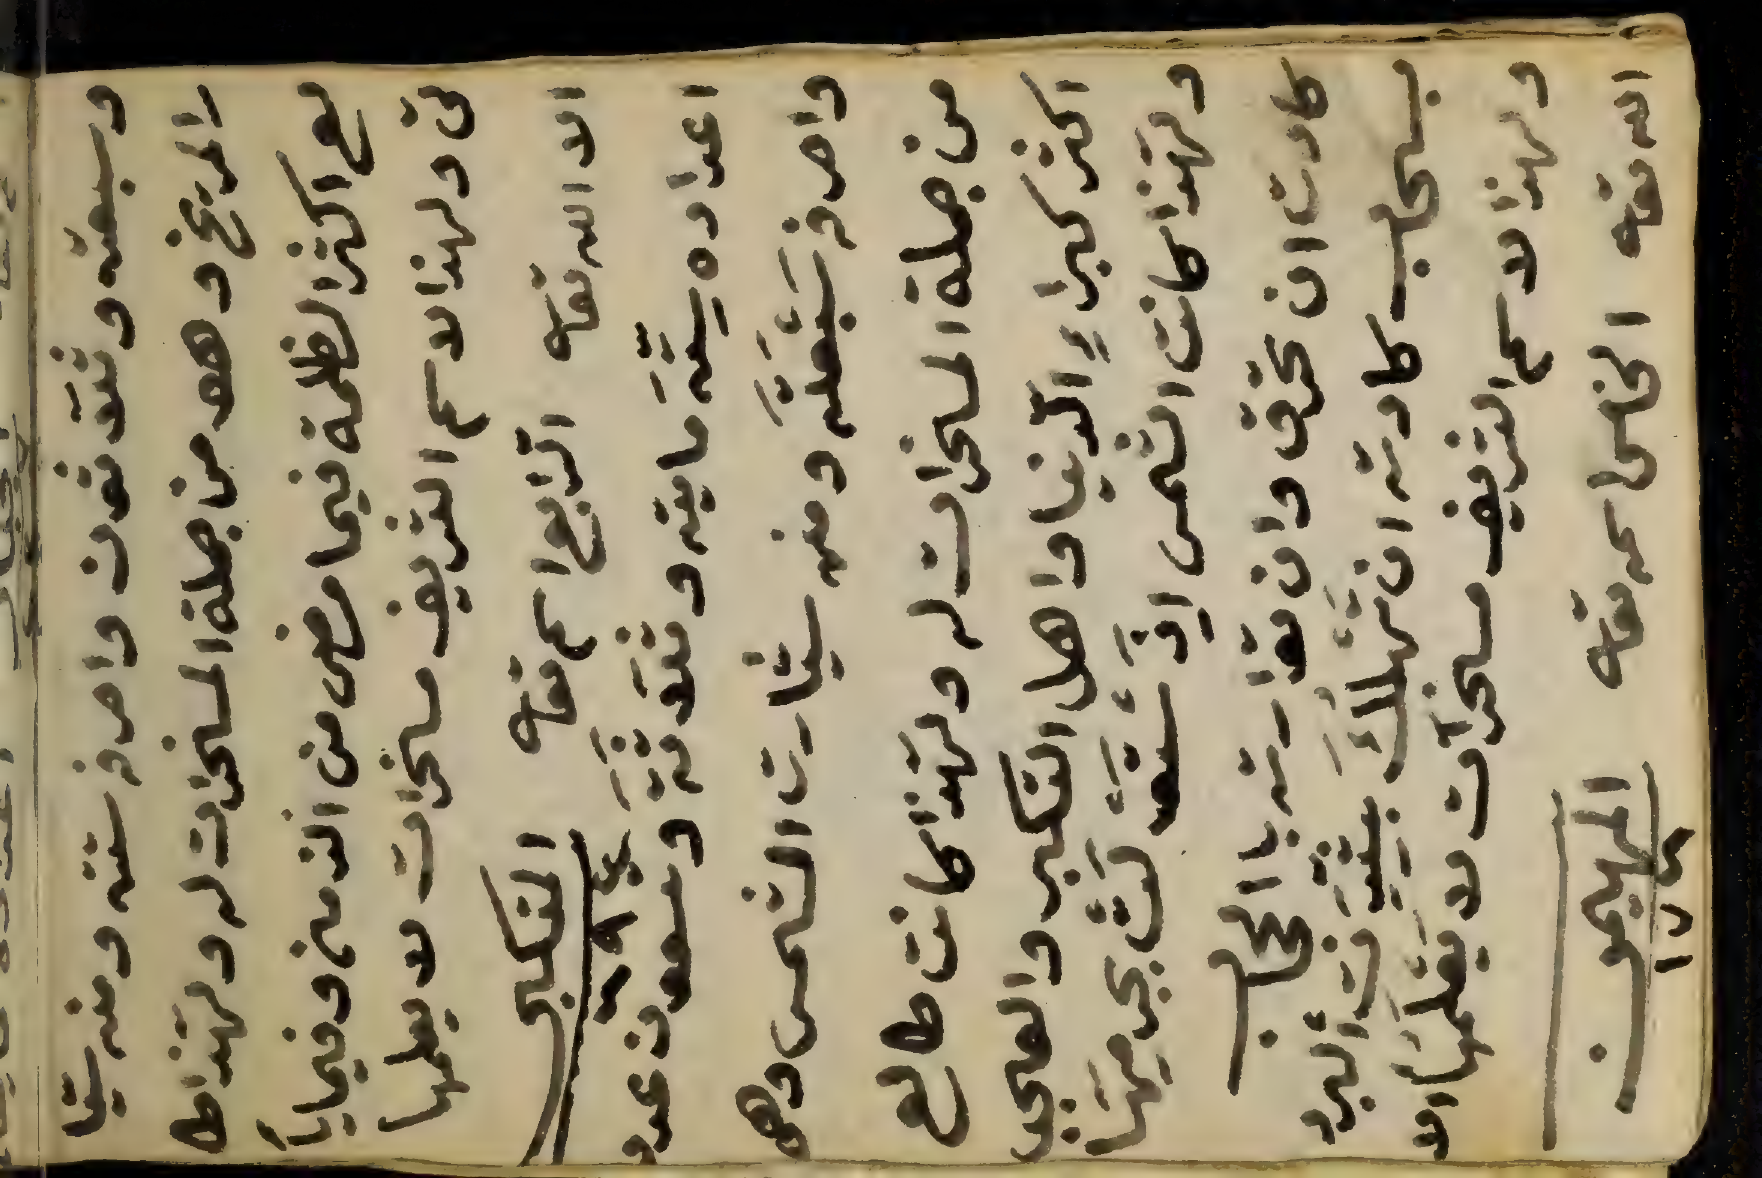 وسبعه وتتعون واحرفه سته ومنه سيا
المريخ وهو من جملة المسخرات له ولهذا طا
لع اكثر الظلمة فيما مضى من الزمن وفيما يا
تى ولهذا الاسم الشريف مسخرات لا يعلمها
الا الله تعه الرابع اسمه تعه المتكبر
اعداده ستة مايته وسعون عدد
واحرفه ومنه سيارت الشمس وهى
من جملة المسخرات له ولهذا كانت طالع
اكثر كبراء الدنيا واهل التكبر والعجب
ولهذا كانت الشمس بجرمها
كادت ان تحرق وان تقارنه بالجانب
كادته ان تهلك البرد
ولهذا الاسم الشريف مسخرات لا يعلمها الا
الله تعه الخامس اسمه تعه المهيمن